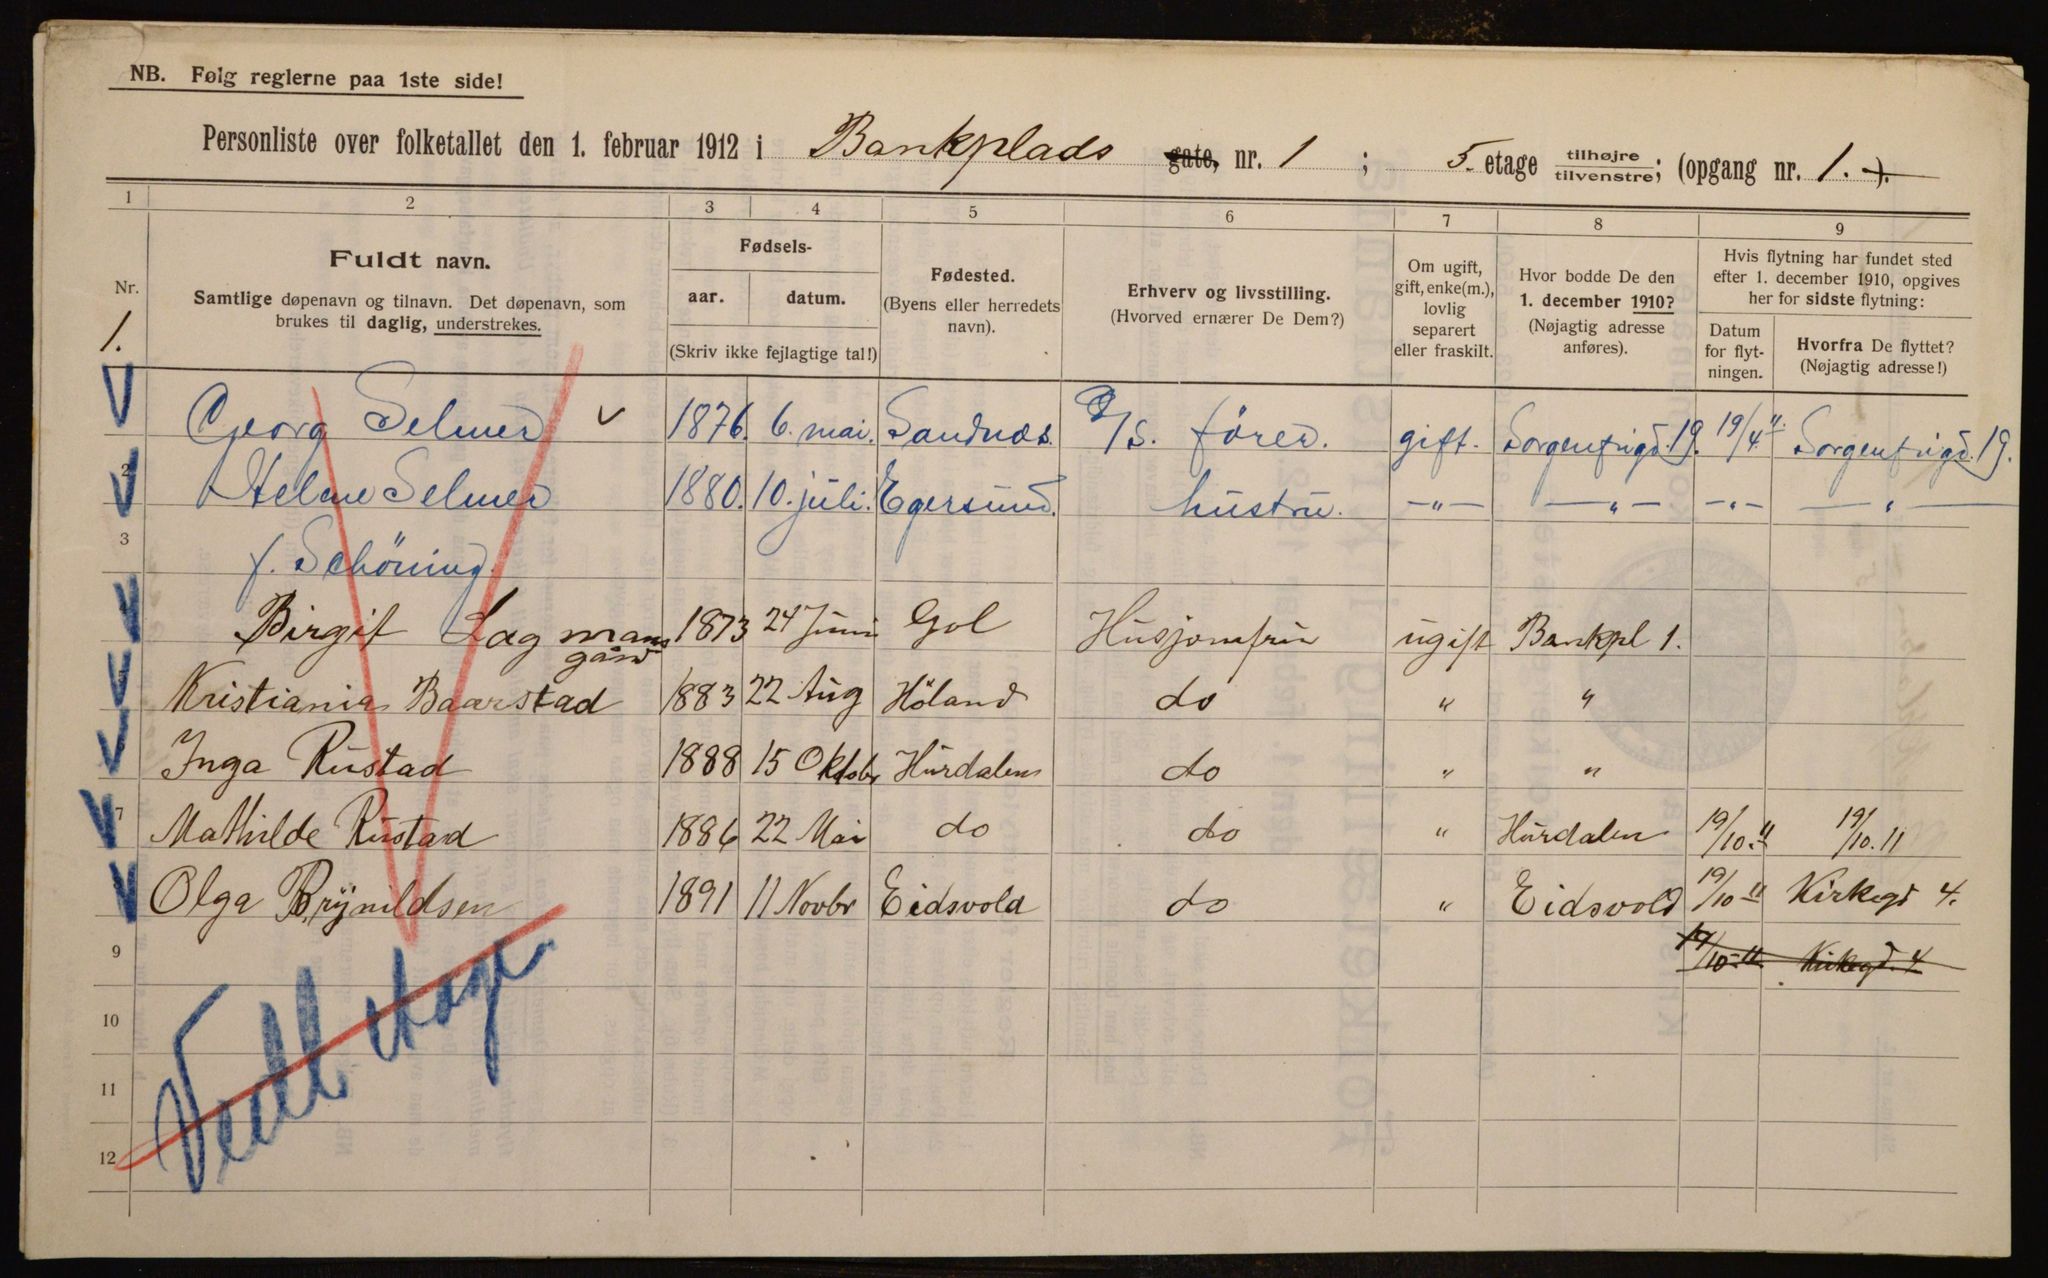 NB. Følg reglerne paa 1ste side!
Personliste over folketallet den 1. februar 1912 i Bankplads gate, nr. 1 ; 5. etage tilhøjre tilvenstre; (opgang nr. 1. ).
1 2 3 4 5 6 7 8 9
Nr. 1.
Fuldt navn.
Samtlige døpenavn og tilnavn. Det døpenavn, som
brukes til daglig, understrekes.
Fødsels-
aar. datum.
(Skriv ikke fejlagtige tal!)
Fødested.
(Byens eller herredets
navn).
Erhverv og livsstilling.
(Hvorved ernærer De Dem?)
Om ugift,
gift, enke(m.),
lovlig
separert
eller fraskilt.
Hvor bodde De den
1. december 1910?
(Nøjagtig adresse
anføres).
Hvis flytning har fundet sted
efter 1. december 1910, opgives
her for sidste flytning:
Datum
for flyt-
ningen.
Hvorfra De flyttet?
(Nøjagtig adresse!)
Georg Selmer 1876. 6. mai. Sandnæs. D/S. förer. gift. Sorgenfrigd. 19. 19/4 11. Sorgenfrigd. 19.
2 Helene Selmer 1880. 10. juli. Egersund. hustru. -"- -"- -"- -"-
3 f. Schöning.
Birgit Lagmans 1873 24 Juni Gol Husjomfru ugift Bankpl 1.
gård
Kristiania Baarstad 1883 22 Aug Höland do " "
Inga Rustad 1888 15 Oktobr Hurdalen do " "
7 Mathilde Rustad 1886 22 Mai do do " Hurdalen 19/10.11 19/10.11
Olga Brynildsen 1891 11 Novbr Eidsvold do " Eidsvold 19/10 11 Kirkegd 4.
9 19/10-11 Kirkegd. 4
10
11
12